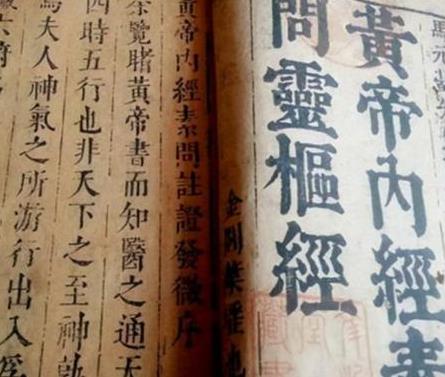 黃帝內經素
問靈樞經
黃帝內經素問註證發微序
覽睹黃帝書而知醫之通天
四時五行也非天下之至神孰
焉夫人神氣之所游行出入